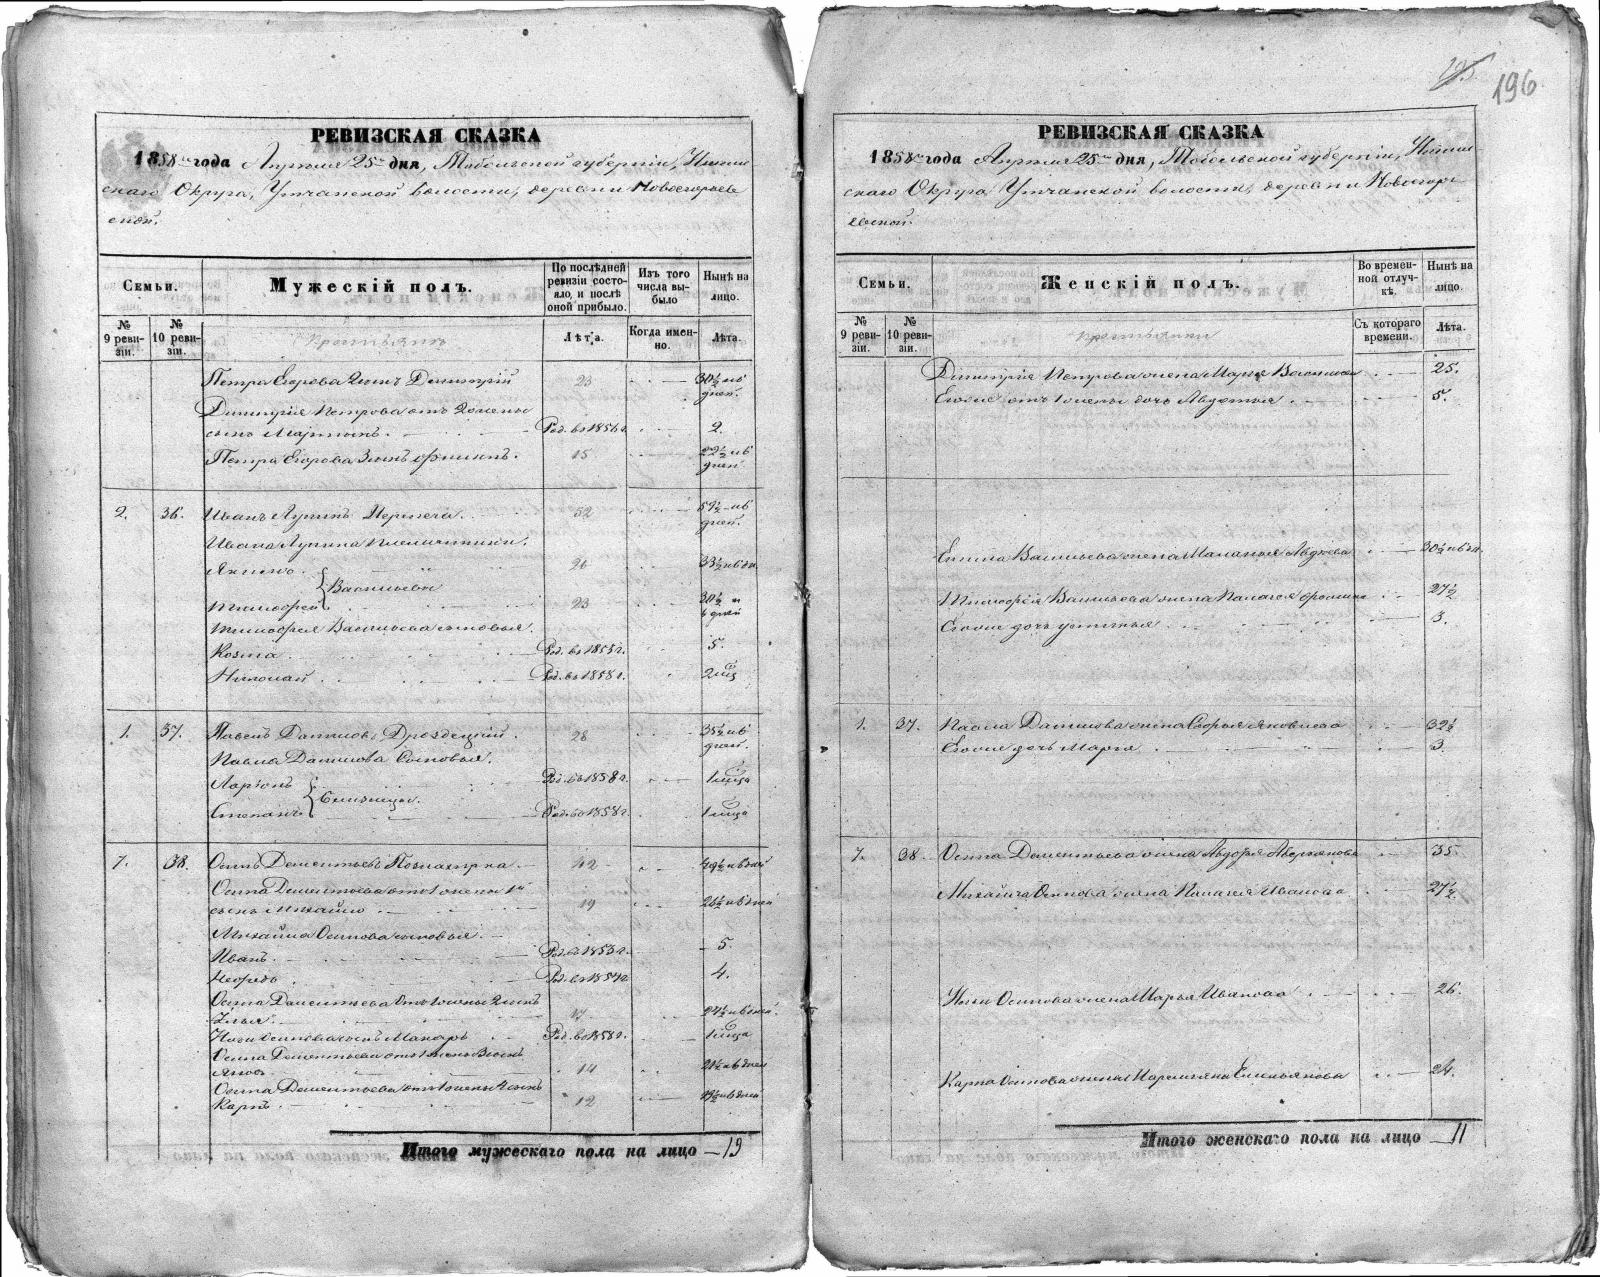 196
РЕВИЗСКАЯ СКАЗКА
1858 года Апреля 25 дня, Тобольской губернии, Ишим
скаго Округа, Утчанской волости, деревни Новоегорьев
ской.
Семьи.
Мужескій полъ.
По послѣдней ревизіи состояло, и послѣ оной прибыло.
Изъ того числа выбыло
Нынѣ на лицо.
№ 9 ревизіи.
№ 10 ревизіи.
Лѣта.
Когда именно.
Лѣта.
Петра Егорова 2 сынъ Димитрій 23 30½ и 6 дней.
Димитрія Петрова отъ 2 жены
сынъ Мартынъ. Род. въ 1856 г. 2.
Петра Егорова 3 сынъ 15 22½ и 6 дней
2. 36. Иванъ Лупинъ 52 59½ и 6 дней.
Ивана Лупина племянники.
Якимъ 26 33½ и 6 дн.
Васильевы
Тимофей 23 30½ и 6 дней
Тимофея Васильева сыновья.
Козма Род. въ 1853 г. 5.
Николай Род. въ 1858 г. 2 мѣс
1. 37. Павелъ Данилов Дроздецкій. 28 35½ и 6 дней.
Павла Данилова Сыновья.
Ларіонъ Род. въ 1858 г. 1 мѣсца
Близнецы.
Степанъ Род. въ 1858 г. 1 мѣсца
7. 38. Осипъ Дементьевъ 42 49½ и 6 дней
Осипа Дементьева отъ 1 жены 1й
сынъ Михайло 19 26½ и 6 дней
Михайла Осипова сыновья.
Иванъ Род. въ 1853 г. 5.
Нефедъ Род. въ 1854 г. 4.
Осипа Дементьева отъ 1 жены 2 сынъ
Илья 17 24½ и 6 дней.
Ильи Осипова сынъ Макаръ Род. въ 1858 г. 1 мѣсца
Осипа Дементьева отъ 1 жены 3 сынъ
14 21½ и 6 дней
Осипа Дементьева отъ 1 жены 4 сынъ
Карпъ 12 19½ и 6 дней
Итого мужескаго пола на лицо 19
РЕВИЗСКАЯ СКАЗКА
1858 года Апреля 25 дня, Тобольской губернии, Ишим
скаго Округа Утчанской волости, деревни Новоегорь
евской.
Семьи.
Женскій полъ.
Во временной отлучкѣ.
Нынѣ на лицо.
№ 9 ревизіи.
№ 10 ревизіи.
Съ котораго времени.
Лѣта.
Димитрія Петрова жена Марья Васильева 25.
Его же отъ 1 жены дочь Авдотья 5.
Екима Васильева жена Маланья Авдѣева 30½ и 6 дн.
Тимофея Васильева жена Палагея 27½
Его же дочь Устинья 3.
1. 37. Павла Данилова жена Софья Яковлева 32½
Его же дочь Марья 3.
7. 38. Осипа Дементьева жена Авдотья Аверьянова 35
Михайла Осипова жена Палагея Иванова 27½
Ильи Осипова жена Марья Иванова 26.
Карпа Осипова жена Емельянова 24.
Итого женскаго пола на лицо 11